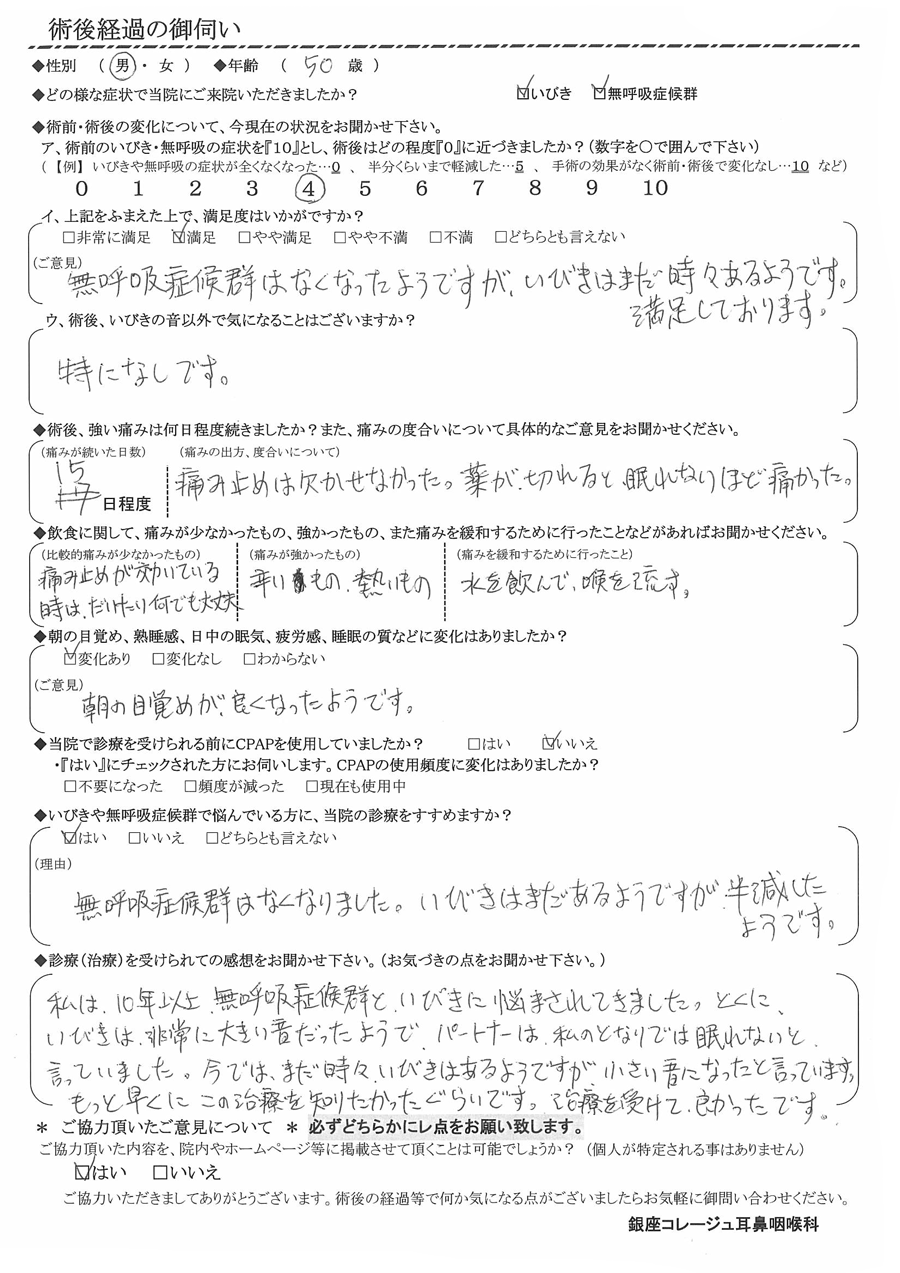 術後経過の御伺い
◆性別 ( 男 ・ 女 ) ◆年齢 ( 50 歳 )
◆どの様な症状で当院にご来院いただきましたか? ☑いびき ☑無呼吸症候群
◆術前・術後の変化について、今現在の状況をお聞かせ下さい。
ア、術前のいびき・無呼吸の症状を『10』とし、術後はどの程度『0』に近づきましたか?(数字を○で囲んで下さい)
(【例】 いびきや無呼吸の症状が全くなくなった…0 、 半分くらいまで軽減した…5 、 手術の効果がなく術前・術後で変化なし…10 など)
0 1 2 3 ④ 5 6 7 8 9 10
イ、上記をふまえた上で、満足度はいかがですか?
□非常に満足 ☑満足 □やや満足 □やや不満 □不満 □どちらとも言えない
(ご意見)
無呼吸症候群はなくなったようですが、いびきはまだ時々あるようです。
満足しております。
ウ、術後、いびきの音以外で気になることはございますか?
特になしです。
◆術後、強い痛みは何日程度続きましたか?また、痛みの度合いについて具体的なご意見をお聞かせください。
(痛みが続いた日数) (痛みの出方、度合いについて)
15 日程度
痛み止めは欠かせなかった。薬が、切れると、眠れないほど痛かった。
◆飲食に関して、痛みが少なかったもの、強かったもの、また痛みを緩和するために行ったことなどがあればお聞かせください。
(比較的痛みが少なかったもの) (痛みが強かったもの) (痛みを緩和するために行ったこと)
痛み止めが効いている 辛いもの、熱いもの 水を飲んで、喉を流す。
時は、だいたい何でも大丈夫
◆朝の目覚め、熟睡感、日中の眠気、疲労感、睡眠の質などに変化はありましたか?
☑変化あり □変化なし □わからない
(ご意見)
朝の目覚めが、良くなったようです。
◆当院で診療を受けられる前にCPAPを使用していましたか? □はい ☑いいえ
・『はい』にチェックされた方にお伺いします。CPAPの使用頻度に変化はありましたか?
□不要になった □頻度が減った □現在も使用中
◆いびきや無呼吸症候群で悩んでいる方に、当院の診療をすすめますか?
☑はい □いいえ □どちらとも言えない
(理由)
無呼吸症候群はなくなりました。いびきはまだあるようですが、半減した
ようです。
◆診療(治療)を受けられての感想をお聞かせ下さい。(お気づきの点をお聞かせ下さい。)
私は、10年以上、無呼吸症候群と、いびきに悩まされてきました。とくに、
いびきは、非常に大きい音だったようで、パートナーは、私のとなりでは眠れないと、
言っていました。今では、まだ時々、いびきはあるようですが、小さい音になったと言っています。
もっと早くに、この治療を知りたかったぐらいです。治療を受けて、良かったです。
* ご協力頂いたご意見について * 必ずどちらかにレ点をお願い致します。
ご協力頂いた内容を、院内やホームページ等に掲載させて頂くことは可能でしょうか? (個人が特定される事はありません)
☑はい □いいえ
ご協力いただきましてありがとうございます。術後の経過等で何か気になる点がございましたらお気軽に御問い合わせください。
銀座コレージュ耳鼻咽喉科